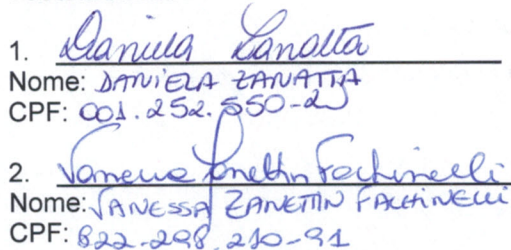 1. Daniela Zanatta
Nome: DANIELA ZANATTA
CPF: 001.252.550-2
2. Vanessa Zanettin Fachinelli
Nome: VANESSA ZANETTIN FACHINELLI
CPF: 822.298.210-91